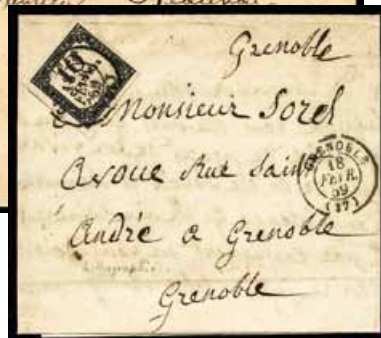 Grenoble
Monsieur Sorel
avoue Rue Saint
André a Grenoble
Grenoble
GRENOBLE
18
FEVR.
59
(37)